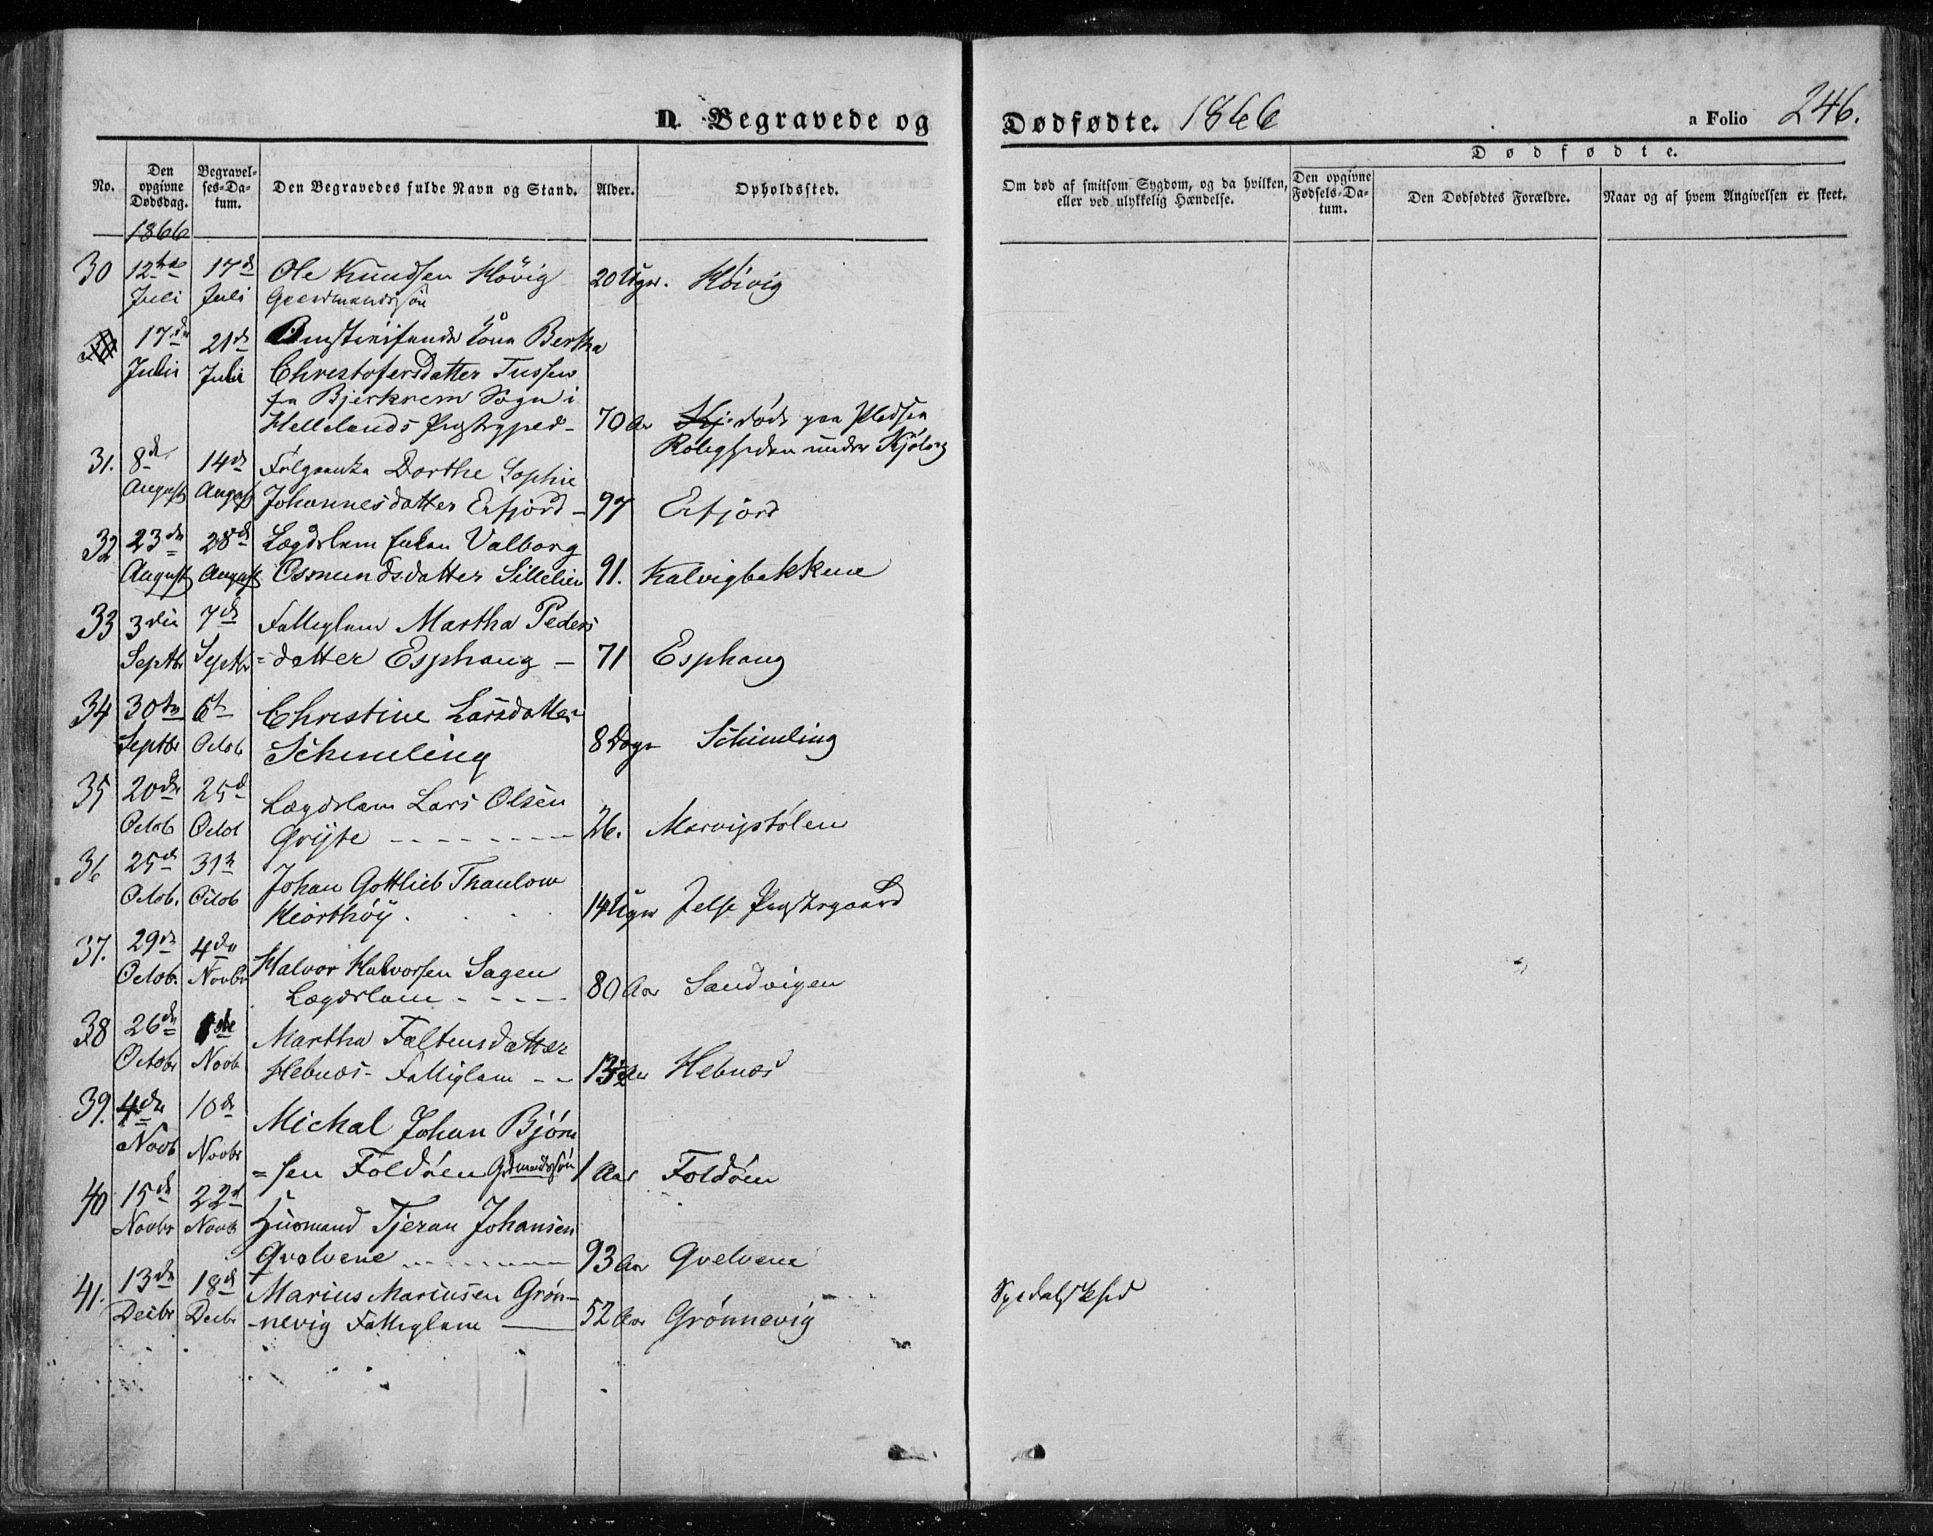 D. Begravede og Dødfødte. 1866 a Folio 246.
No. Den opgivne Dødsdag. Begravelses-Datum. Den Begravedes fulde Navn og Stand. Alder. Opholdssted. Om død af smitsom Sygdom, og da hvilken, eller ved ulykkelig Hændelse. Dødfødte. Den opgivne Fødsels-Datum. Den Dødfødtes Forældre. Naar og af hvem Angivelsen er skeet.
1866
30 12te 17de Ole Knudsen Høvig 20 Uger. Høivig
Juli Juli Gaardmandssøn
17de 21de Kone Bertha
Juli Juli Christofersdatter Tussen
fra Bjerkrem Sogn i
Hellelands Præstegjeld - 70 Aar døde paa Pladsen
Roligheden under Kjølvig
31. 8de 14de Dorthe Sophie
August August Johannesdatter Erfjord - 97 Erfjord
32 23de 28de Lægdslem Enken Valborg
August August Osmundsdatter Sillelien 91. Kalvigbakkene
33 3die 7de Fattiglem Martha Peders
Septbr Septbr =datter Esphaug - 71 Esphaug
34 30te 6te Christine Larsdatter
Septbr Octob Schimling 8 Dage Schimling
35 20de 25de Lægdslem Lars Olsen
Octob Octob Gryte - - - - - - - 26. Marvigstølen
36 25de 31te Johan Gottlieb Thaulow
Octob. Octob Hiorthøy . . . . 14 Uger Jelse Præstegaard
37. 29de 4de Halvor Halvorsen Sagen
Octob. Novbr Lægdslem - - - - 80 Aar Sandvigen
38 26de 1ste Martha Faltensdatter
Octobr Novb Hebnæs - Fattiglem - - Hebnæs
39. 4de 10de Michal Johan Bjørn
Novb Novbr =sen Foldøen Gdmandssøn 1 Aar Foldøen
40 15de 22de Husmand Tjeran Johansen
Novbr Novb Qvelvene - - - - - - - 93 Aar Qvelvene
41. 13de 18de Marius Mariusen Grøn-
Decbr Decbr -nevig Fattiglem - 52 Aar Grønnevig Spedalskhed